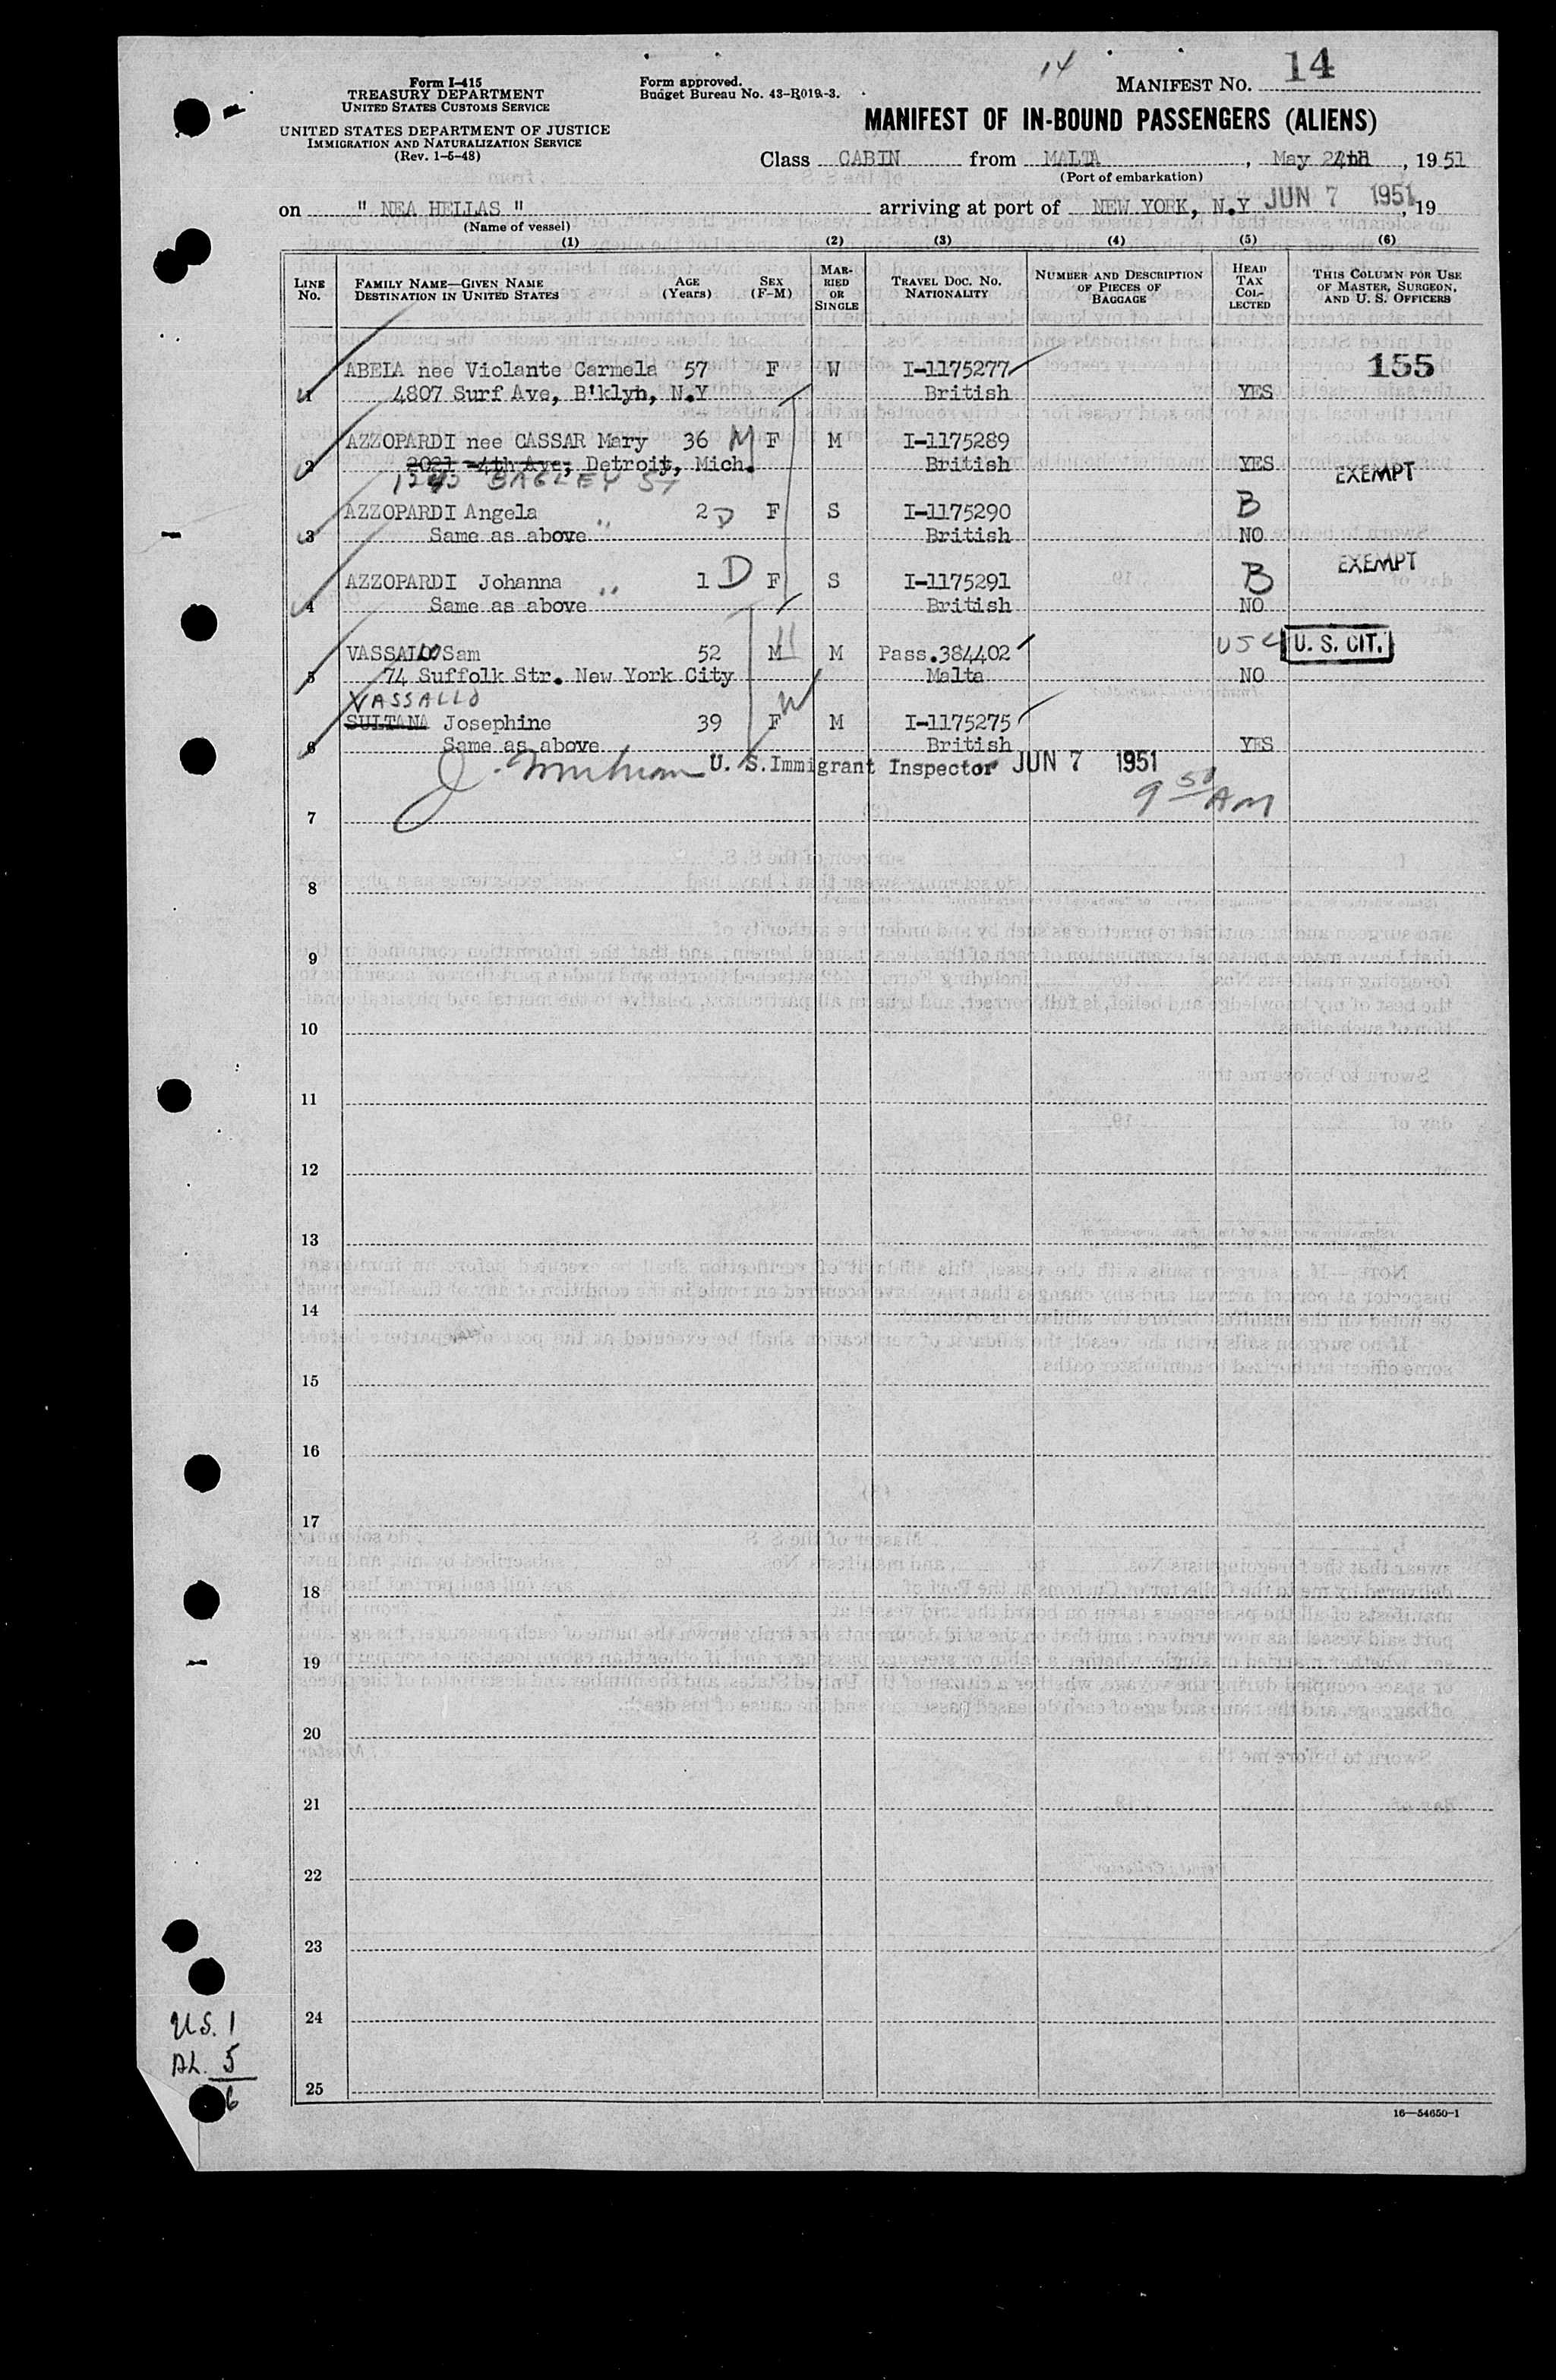 Form I-415
TREASURY DEPARTMENT
UNITED STATES CUSTOMS SERVICE
UNITED STATES DEPARTMENT OF JUSTICE
IMMIGRATION AND NATURALIZATION SERVICE
(Rev. 1-5-48)
Form approved.
Budget Bureau No. 43-R019-3.
14
MANIFEST NO. 14
MANIFEST OF IN-BOUND PASSENGERS (ALIENS)
Class CABIN from MALTA, May 24th, 1951
(Port of embarkation)
on " NEA HELLAS " arriving at port of NEW YORK, N.Y JUN 7 1951, 19
(Name of vessel)
(1) (2) (3) (4) (5) (6)
LINE NO. FAMILY NAME—GIVEN NAME DESTINATION IN UNITED STATES AGE (Years) SEX (F-M) MARRIED OR SINGLE TRAVEL DOC. NO. NATIONALITY NUMBER AND DESCRIPTION OF PIECES OF BAGGAGE HEAD TAX COLLECTED THIS COLUMN FOR USE OF MASTER, SURGEON, AND U. S. OFFICERS
ABELA nee Violante Carmela 57 F W I-1175277 155
1 4807 Surf Ave, B'klyn, N.Y British YES
AZZOPARDI nee CASSAR Mary 36 M F M I-1175289
2 2021 -4th Ave; Detroit, Mich. British YES
BAGLEY ST EXEMPT
AZZOPARDI Angela 2 D F S I-1175290 B
3 Same as above " British NO
EXEMPT
AZZOPARDI Johanna " 1 D F S I-1175291 B
4 Same as above British NO
VASSALLO Sam 52 M M Pass.384402 USC U. S. CIT.
5 74 Suffolk Str. New York City Malta NO
VASSALLO W
SULTANA Josephine 39 F M I-1175275
6 Same as above British YES
U. S. Immigrant Inspector JUN 7 1951
9 50 AM
7
8
9
10
11
12
13
14
15
16
17
18
19
20
21
22
23
24
25
U.S. 1
AL. 5
6
16—54650-1